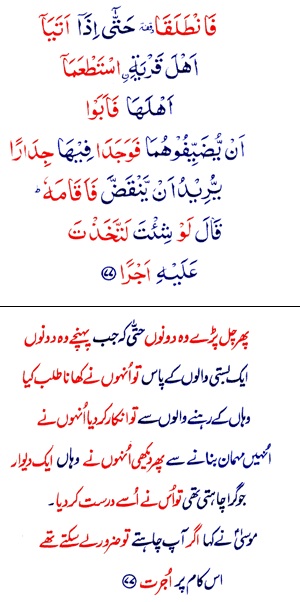 فَانْطَلَقَا وقفة حَتّٰۤی اِذَاۤ اَتَیَاۤ
اَهْلَ قَرْیَةِ ۟اسْتَطْعَمَاۤ
اَهْلَهَا فَاَبَوْا
اَنْ یُّضَیِّفُوْهُمَا فَوَجَدَا فِیْهَا جِدَارًا
یُّرِیْدُ اَنْ یَّنْقَضَّ فَاَقَامَهٗ ؕ
قَالَ لَوْ شِئْتَ لَتَّخَذْتَ
عَلَیْهِ اَجْرًا ﴿۷۷﴾
پھر چل پڑے وہ دونوں حتّٰی کہ جب پہنچے وہ دونوں
ایک بستی والوں کے پاس تو اُنہوں نے کھانا طلب کیا
وہاں کے رہنے والوں سے تو انکار کر دیا اُنہوں نے
اُنہیں مہمان بنانے سے پھر دیکھی اُنہوں نے وہاں ایک دیوار
جو گرا چاہتی تھی تو اُس نے اُسے درست کر دیا۔
موسیٰؑ نے کہا اگر آپ چاہتے تو ضرور لے سکتے تھے
اس کام پر اُجرت ﴿۷۷﴾